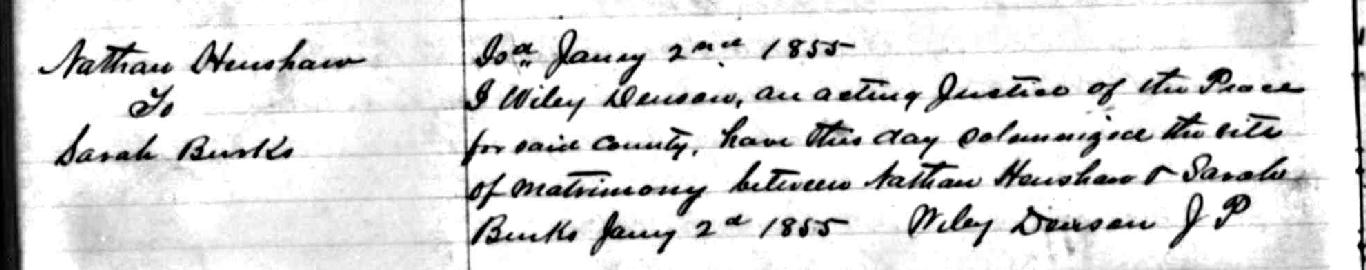 Nathan Henshaw
To
Sarah Burks
Isd Jany 2nd 1855
I Wiley Denson, an acting Justice of the Peace
for said county, have this day solemnized the rite
of matrimony between Nathan Henshaw & Sarah
Burks Jany 2d 1855 Wiley Denson J P